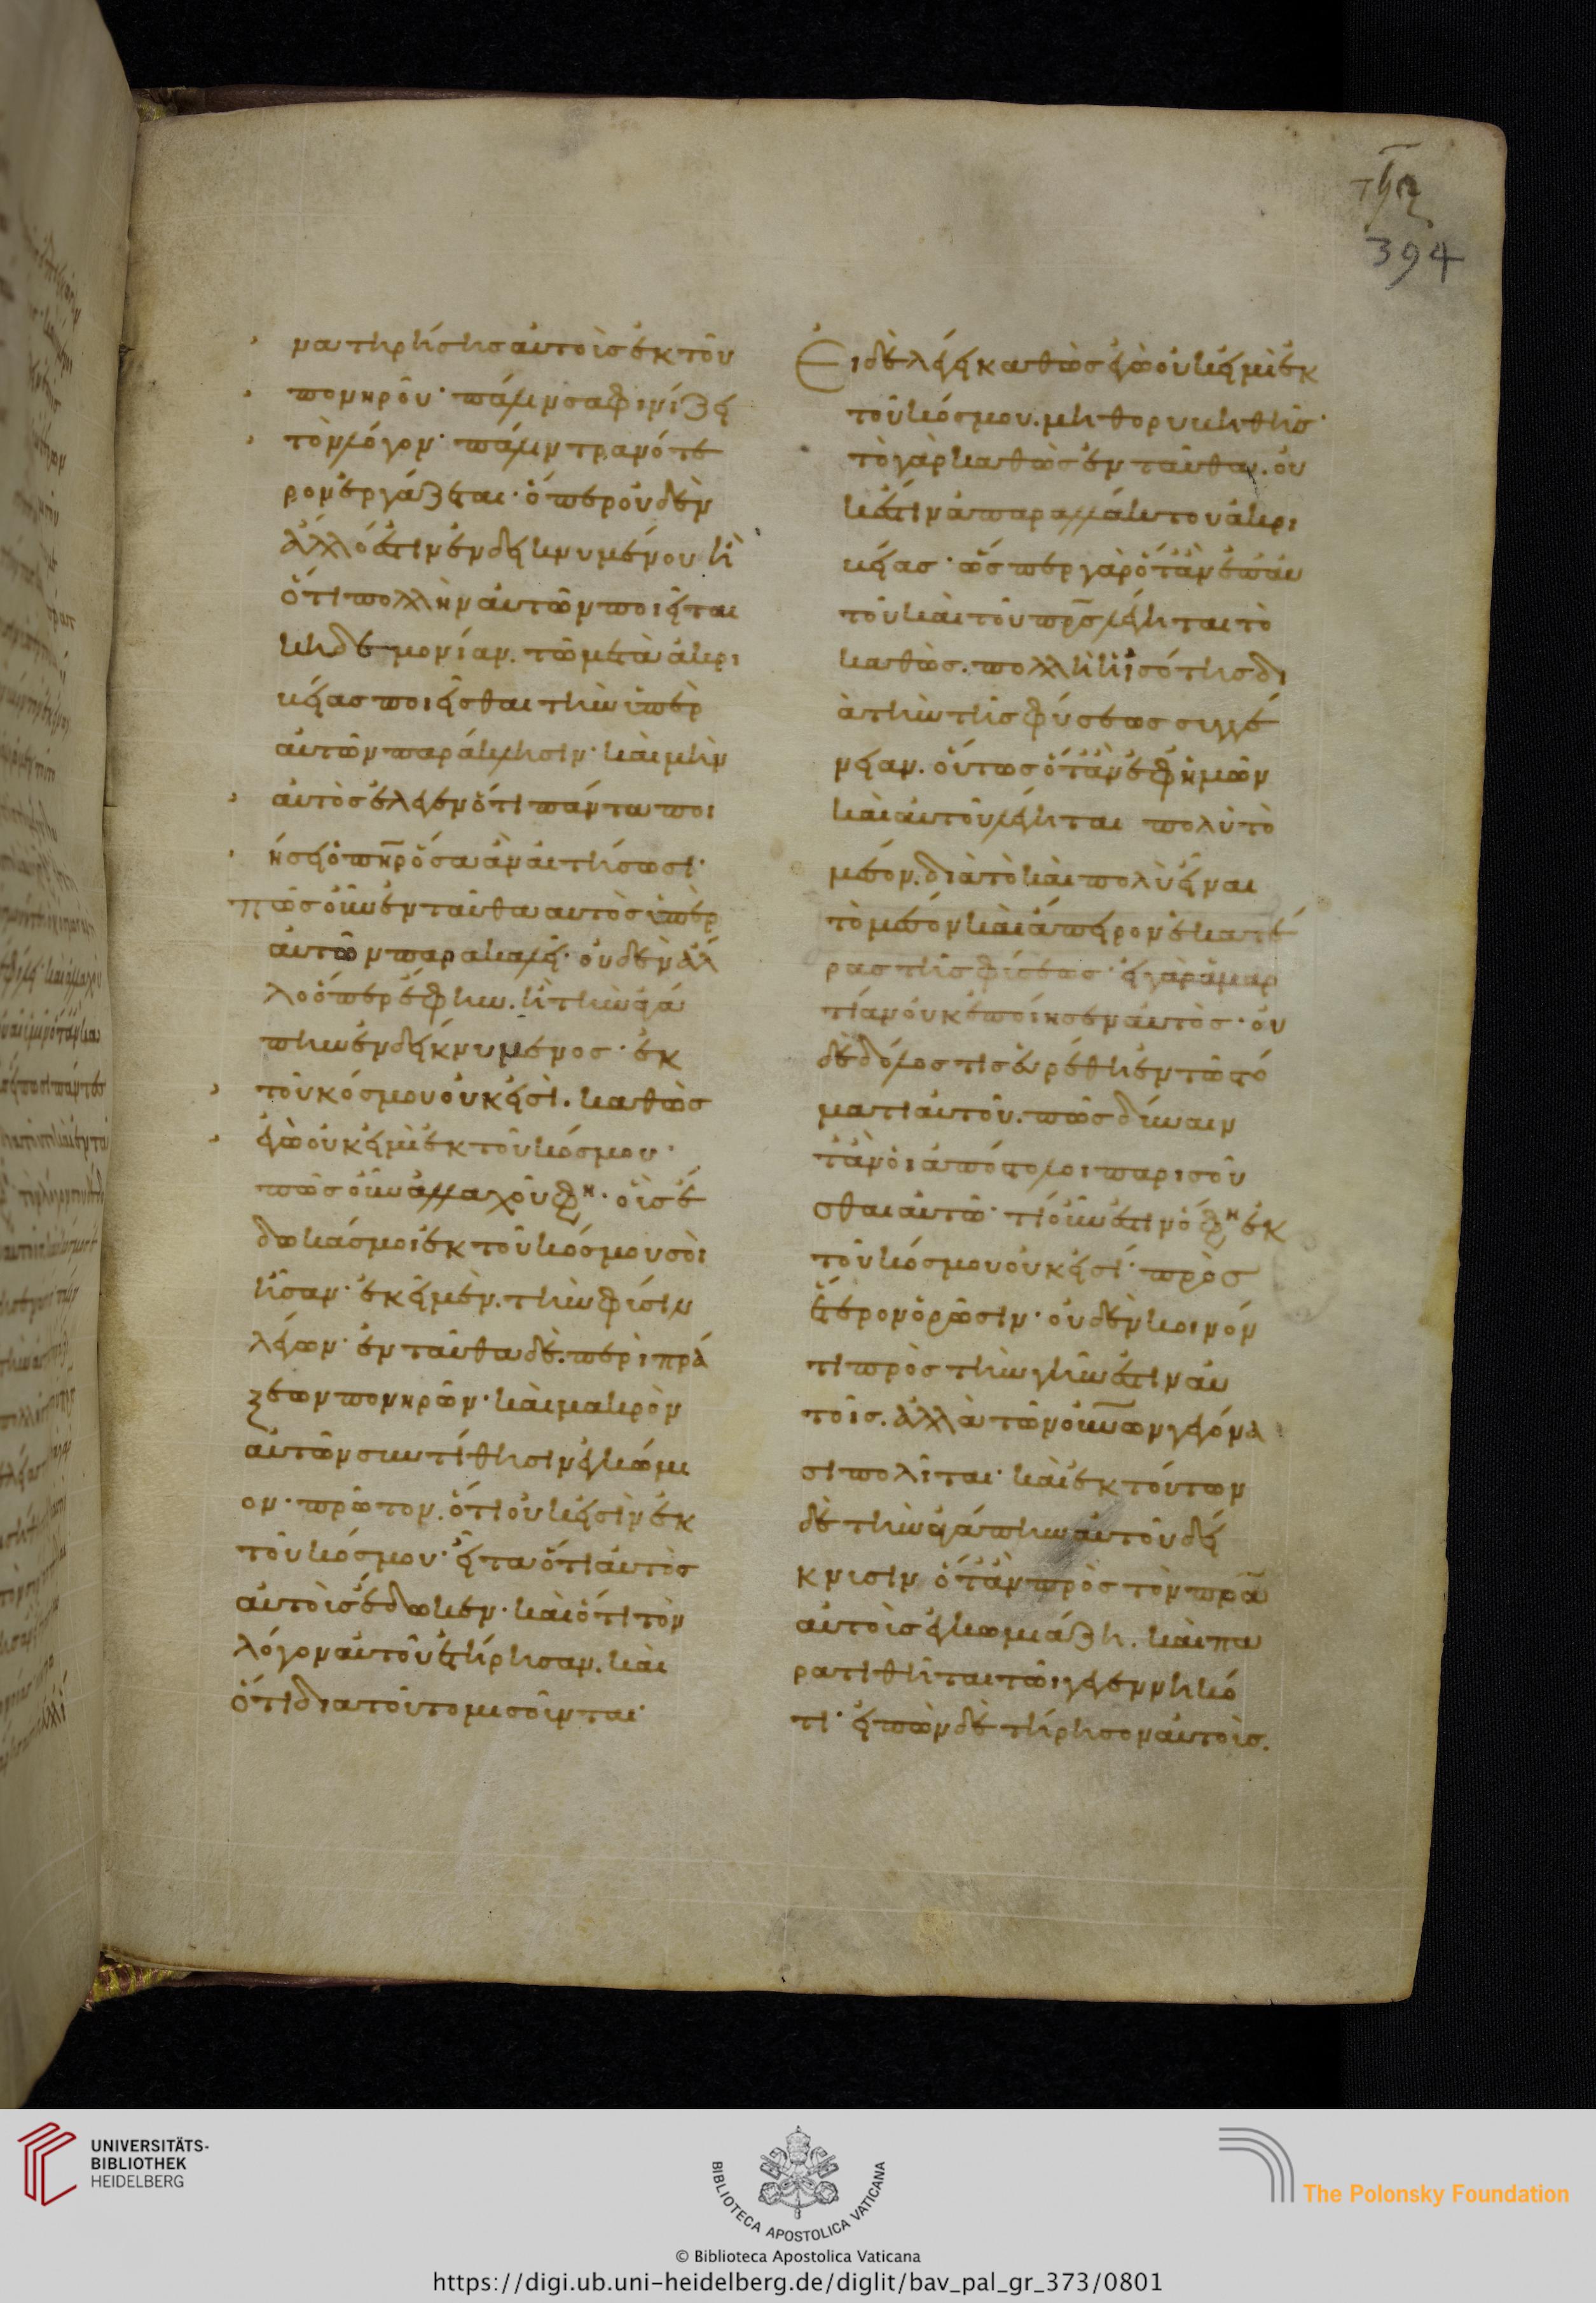 τϟζ
394
να τηρήσης αὐτοὺς ἐκ τοῦ
πονηροῦ· πάλιν σαφινίζει
τὸν λόγον· πάλιν τρανότε
ρον ἐργάζεται· ὅπερ οὐδὲν
ἄλλό ἐστιν ἐνδεικνυμένου ἢ
ὅτι πολλὴν αὐτῶν ποιεῖται
κηδεμονίαν. τῶ μετὰ ἀκρι
βείας ποιεῖσθαι τὴν ὑπὲρ
αὐτῶν παράκλησιν· καὶ μὴν
αὐτὸς ἔλεγεν ὅτι πάντα ποι
ήσει ὁ πη̅ρ ὅσα ἂν αἰτήσωσι·
πῶς οὖν ἐνταῦθα αὐτὸς ὑπὲρ
αὐτῶν παρακαλεῖ· οὐδὲν ἄλ
λο ὅπερ ἔφην. ἢ τὴν ἀγά
πην ἐνδεικνύμενος· ἐκ
τοῦ κόσμου οὐκ εἰσὶ. καθὼς
ἐγὼ οὐκ εἰμὶ ἐκ τοῦ κόσμου·
πῶς οὖν ἀλλαχοῦ φη· οὓς ἔ
δωκάς μοι ἐκ τοῦ κόσμου σοὶ
ἦσαν· ἐκεῖ μὲν. τὴν φύσιν
λέγων· ἐνταῦθα δὲ. περὶ πρά
ξεων πονηρῶν· καὶ μακρὸν
αὐτῶν συντίθησιν ἐγκώμι
ον· πρῶτον. ὅτι οὐκ εἰσὶν ἐκ
τοῦ κόσμου· εἶτα ὅτι αὐτὸς
αὐτοὺς ἔδωκεν· καὶ ὅτι τὸν
λόγον αὐτοῦ ἐτήρησαν. καὶ
ὅτι διατοῦτο μισοῦνται·
Εἰ δὲ λέγει καθὼς ἐγὼ οὐκ εἰμὶ ἐκ
τοῦ κόσμου. μὴ θορυβηθῆς·
τὸ γὰρ καθὼς ἐνταῦθα. οὐ
κ ἔστιν ἀπαραλλάκτου ἀκρι
βείας· ὥσπερ γὰρ ὅταν ἐπ αὐ
τοῦ καὶ τοῦ πρ̅ς λέγηται τὸ
καθὼς. πολλὴ ἡ ἰσότης δι
ὰ τὴν τῆς φύσεως συγγέ
νειαν. οὕτως ὅταν ἐφ ἡμῶν
καὶ αὐτοῦ λέγηται πολὺ τὸ
μέσον. διὰ τὸ καὶ πολὺ εἶναι
τὸ μέσον καὶ ἄπειρον ἑκατέ
ρας τῆς φύσεως· εἰ γὰρ ἁμαρ
τίαν οὐκ ἐποίησεν αὐτὸς· οὐ
δὲ δόλος τις εὑρέθη ἐν τῶ στό
ματι αὐτοῦ. πῶς δύναιν
τ ἂν οἱ ἀπόστολοι παρισοῦ
σθαι αὐτῶ· τί οὖν ἐστιν ὅ φη ἐκ
τοῦ κόσμου οὐκ εἰσί· πρὸς
ἕτερον ὁρῶσιν· οὐδὲν κοινόν
τι πρὸς τὴν γῆν ἐστιν αὐ
τοῖς. ἀλλὰ τῶν οὐν̅ων γεγόνα
σι πολῖται· καὶ ἐκ τούτων
δὲ τὴν ἀγάπην αὐτοῦ δεί
κνυσιν ὅταν πρὸς τὸν πρ̅α
αὐτοὺς ἐγκωμιάζη. καὶ πα
ρατιθῆται τῶι γεγεννηκό
τι· εἰπὼν δὲ τήρησον αὐτοὺς.
UNIVERSITÄTS-
BIBLIOTHEK
HEIDELBERG
BIBLIOTECA APOSTOLICA VATICANA
The Polonsky Foundation
© Biblioteca Apostolica Vaticana
https://digi.ub.uni-heidelberg.de/diglit/bav_pal_gr_373/0801